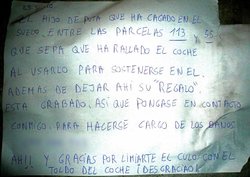 EL HIJO DE PUTA QUE HA CAGADO EN EL
SUELO, ENTRE LAS PARCELAS 113 Y 55
QUE SEPA QUE HA RALLADO EL COCHE
AL USARLO PARA SOSTENERSE EN EL.
ADEMAS DE DEJAR AHI SU "REGALO".
ESTA GRABADO, ASI QUE PONGASE EN CONTACTO
CONMIGO, PARA HACERSE CARGO DE LOS DAÑOS
AH!! Y GRACIAS POR LIMIARTE EL CULO CON EL
TOLDO DEL COCHE ¡DESGRACIAO!